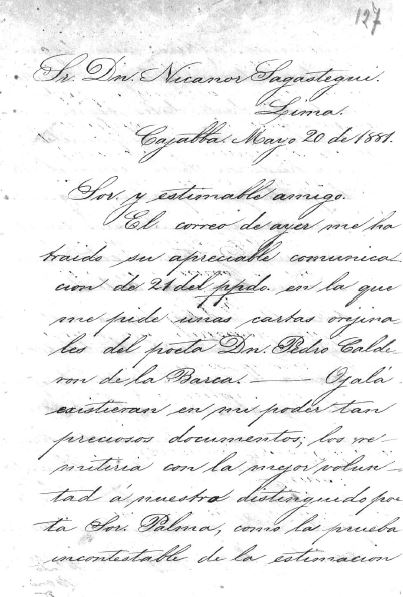 127
Sr. Dn. Nicanor Sagastegue.
Lima.
Cajabba. Mayo 20 de 1881.
Sor. y estimable amigo.
El correo de ayer me ha
traido su apreciable comunica
cion de 21 del ppdo. en la que
me pide unas cartas orejina
les del poeta Dn. Pedro Calde
ron de la Barca. — Ojalá
existieran en me poder tan
preciosos documentos; los re
mitiria con la mejor volun-
tad á nuestro distinguido poe
ta Sor. Palma, como la prueba
incontestable de la estimacion